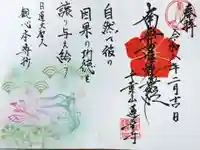 奉拝
令和二年二月吉日
南無妙法蓮華経
自然に彼の
因果の功徳を
譲り与え給う
日蓮大聖人
観心本尊抄